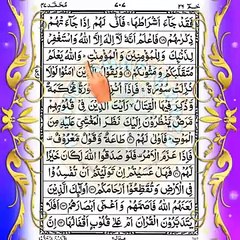 حٰمٓ ٢٦ ٧٠٧ مُحَمَّد ٤٧
فَقَدْ جَآءَ اَشْرَاطُهَا ۚ فَاَنّٰى لَهُمْ اِذَا جَآءَتْهُمْ
ذِكْرٰىهُمْ ۝ فَاعْلَمْ اَنَّهٗ لَاۤ اِلٰهَ اِلَّا اللّٰهُ وَاسْتَغْفِرْ
لِذَنْۢبِكَ وَلِلْمُؤْمِنِيْنَ وَالْمُؤْمِنٰتِ ؕ وَاللّٰهُ يَعْلَمُ
مُتَقَلَّبَكُمْ وَمَثْوٰىكُمْ ۝ وَيَقُوْلُ الَّذِيْنَ اٰمَنُوْا لَوْلَا
نُزِّلَتْ سُوْرَةٌ ۚ فَاِذَاۤ اُنْزِلَتْ سُوْرَةٌ مُّحْكَمَةٌ
وَّذُكِرَ فِيْهَا الْقِتَالُ ۙ رَاَيْتَ الَّذِيْنَ فِيْ قُلُوْبِهِمْ
مَّرَضٌ يَّنْظُرُوْنَ اِلَيْكَ نَظَرَ الْمَغْشِيِّ عَلَيْهِ مِنَ
الْمَوْتِ ؕ فَاَوْلٰى لَهُمْ ۝ طَاعَةٌ وَّقَوْلٌ مَّعْرُوْفٌ
فَاِذَا عَزَمَ الْاَمْرُ فَلَوْ صَدَقُوا اللّٰهَ لَكَانَ خَيْرًا
لَّهُمْ ۝ فَهَلْ عَسَيْتُمْ اِنْ تَوَلَّيْتُمْ اَنْ تُفْسِدُوْا
فِي الْاَرْضِ وَتُقَطِّعُوْۤا اَرْحَامَكُمْ ۝ اُولٰٓئِكَ الَّذِيْنَ
لَعَنَهُمُ اللّٰهُ فَاَصَمَّهُمْ وَاَعْمٰۤى اَبْصَارَهُمْ ۝ اَفَلَا
يَتَدَبَّرُوْنَ الْقُرْاٰنَ اَمْ عَلٰى قُلُوْبٍ اَقْفَالُهَا ۝ اِنَّ